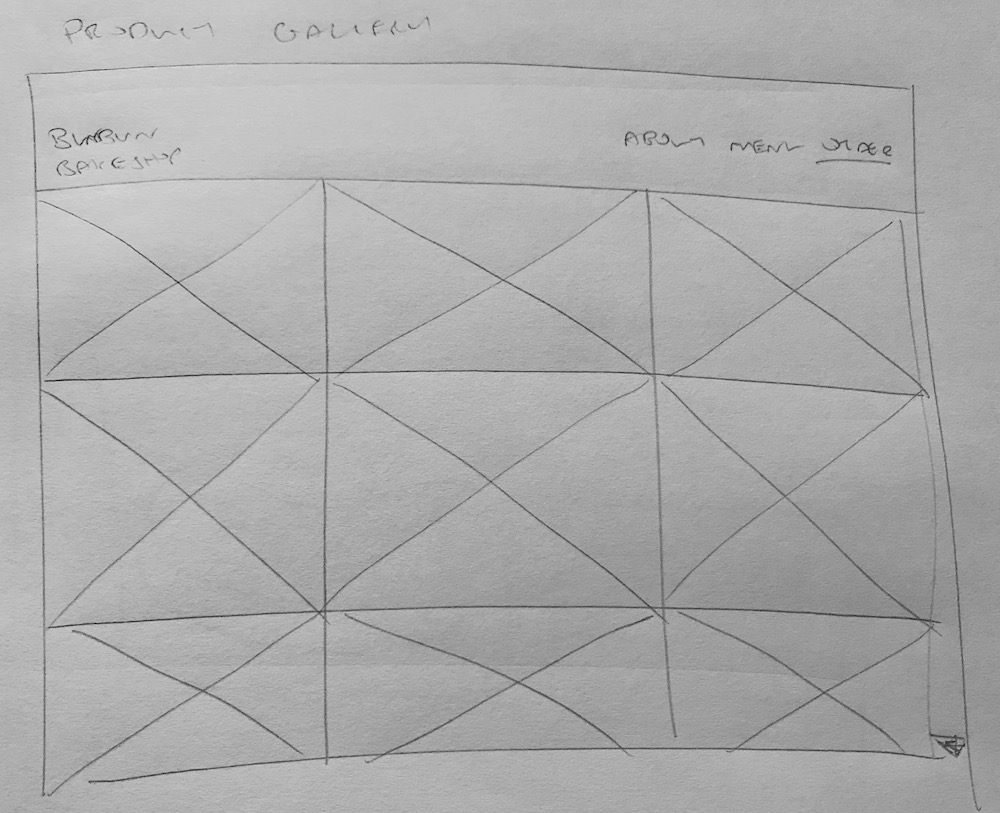 PRODUCT GALLERY
BUNBUN
BAKESHOP
ABOUT MENU ORDER